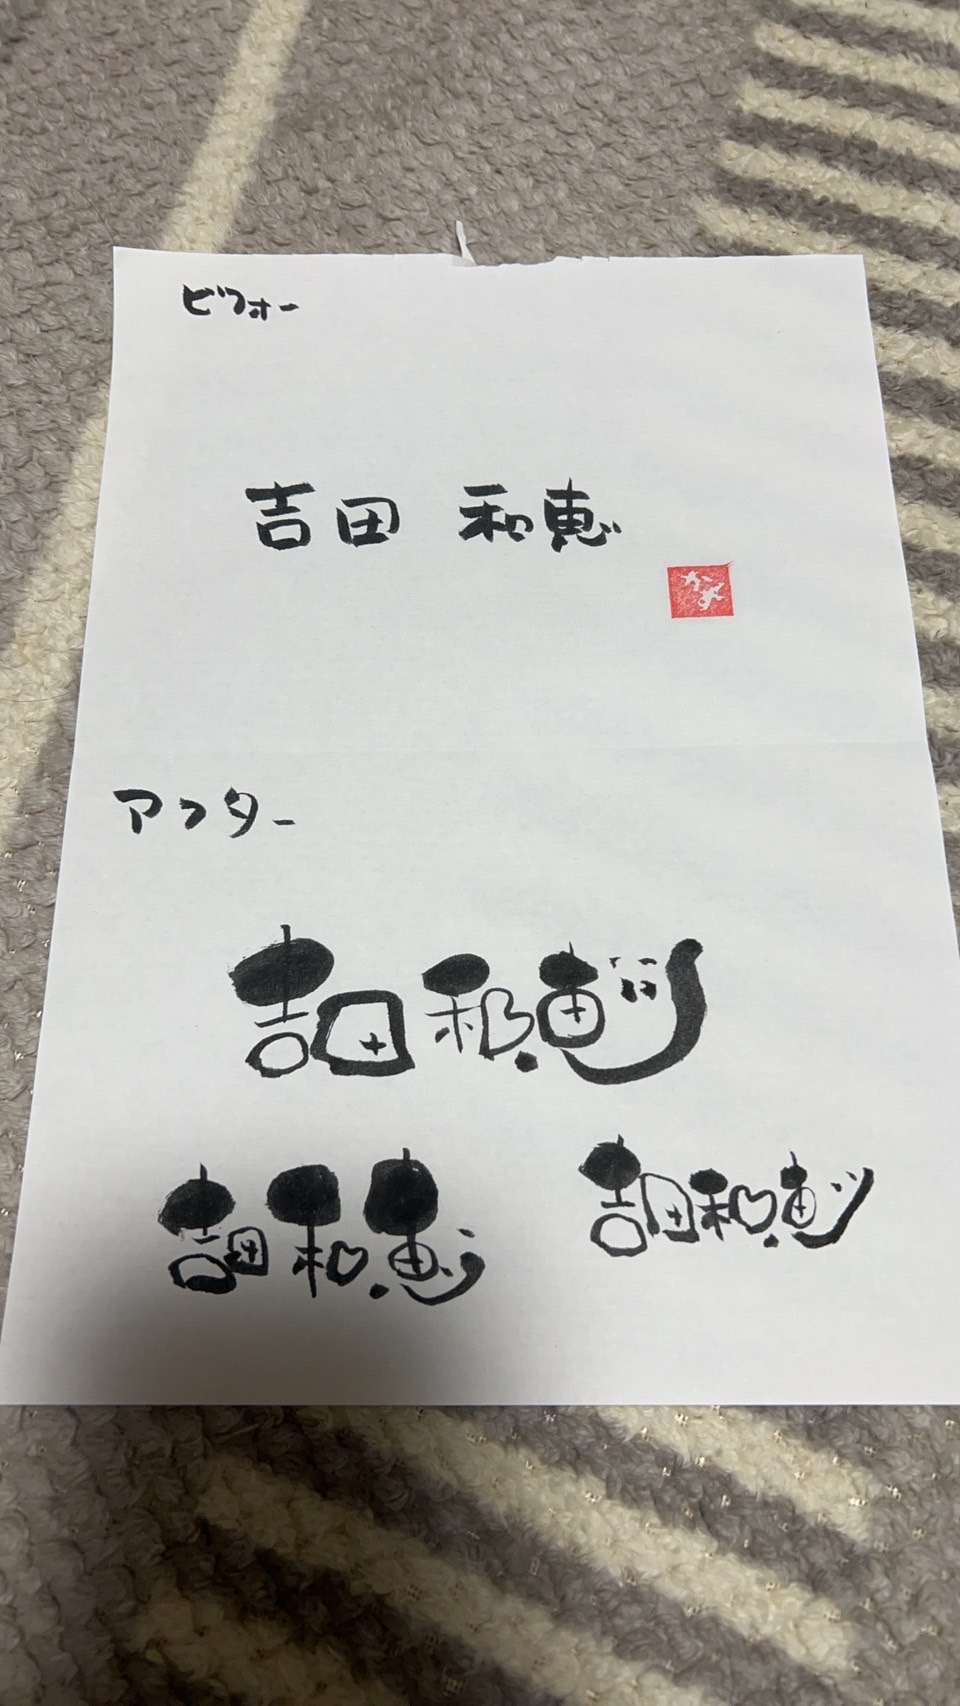 ビフォー
吉田 和恵
かずえ
アフター
吉田和恵
吉田和恵
吉田和恵